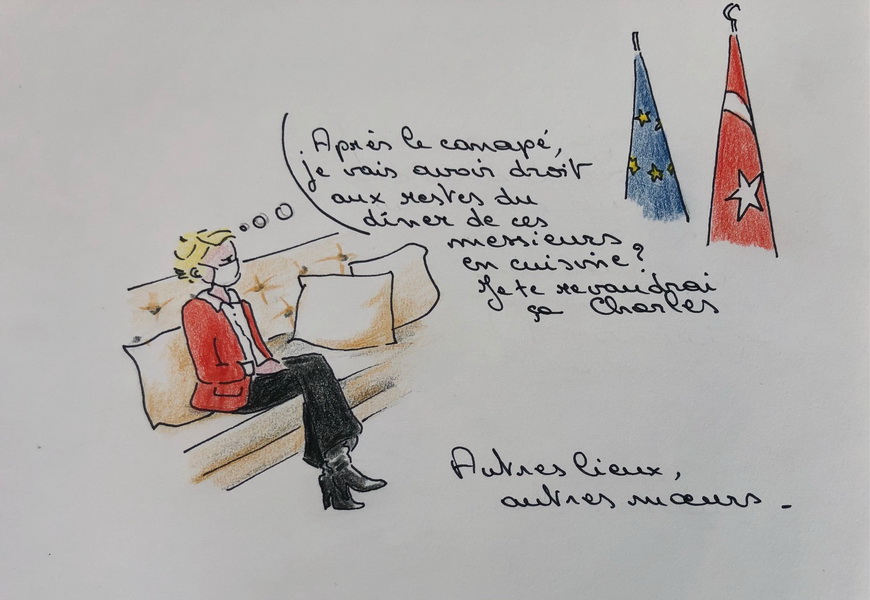 Après le canapé,
je vais avoir droit
aux restes du
dîner de ces
messieurs
en cuisine ?
Je te revaudrai
ça Charles
Autres lieux,
autres mœurs.